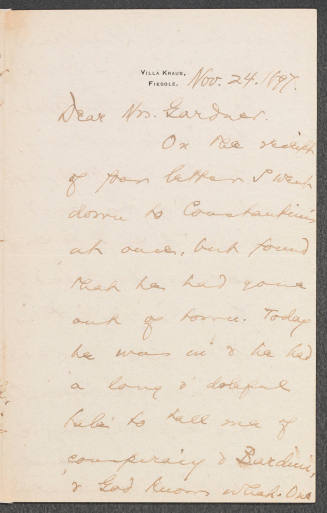 VILLA KRAUS,
FIESOLE.
Nov. 24. 1897.
Dear Mrs. Gardner.
On the receipt
of your letter I went
down to Constantini
at once, but found
that he had gone
out of town. Today
he was in & he had
a long & doleful
tale to tell me of
conspiracy & Bardini,
& God knows what. One